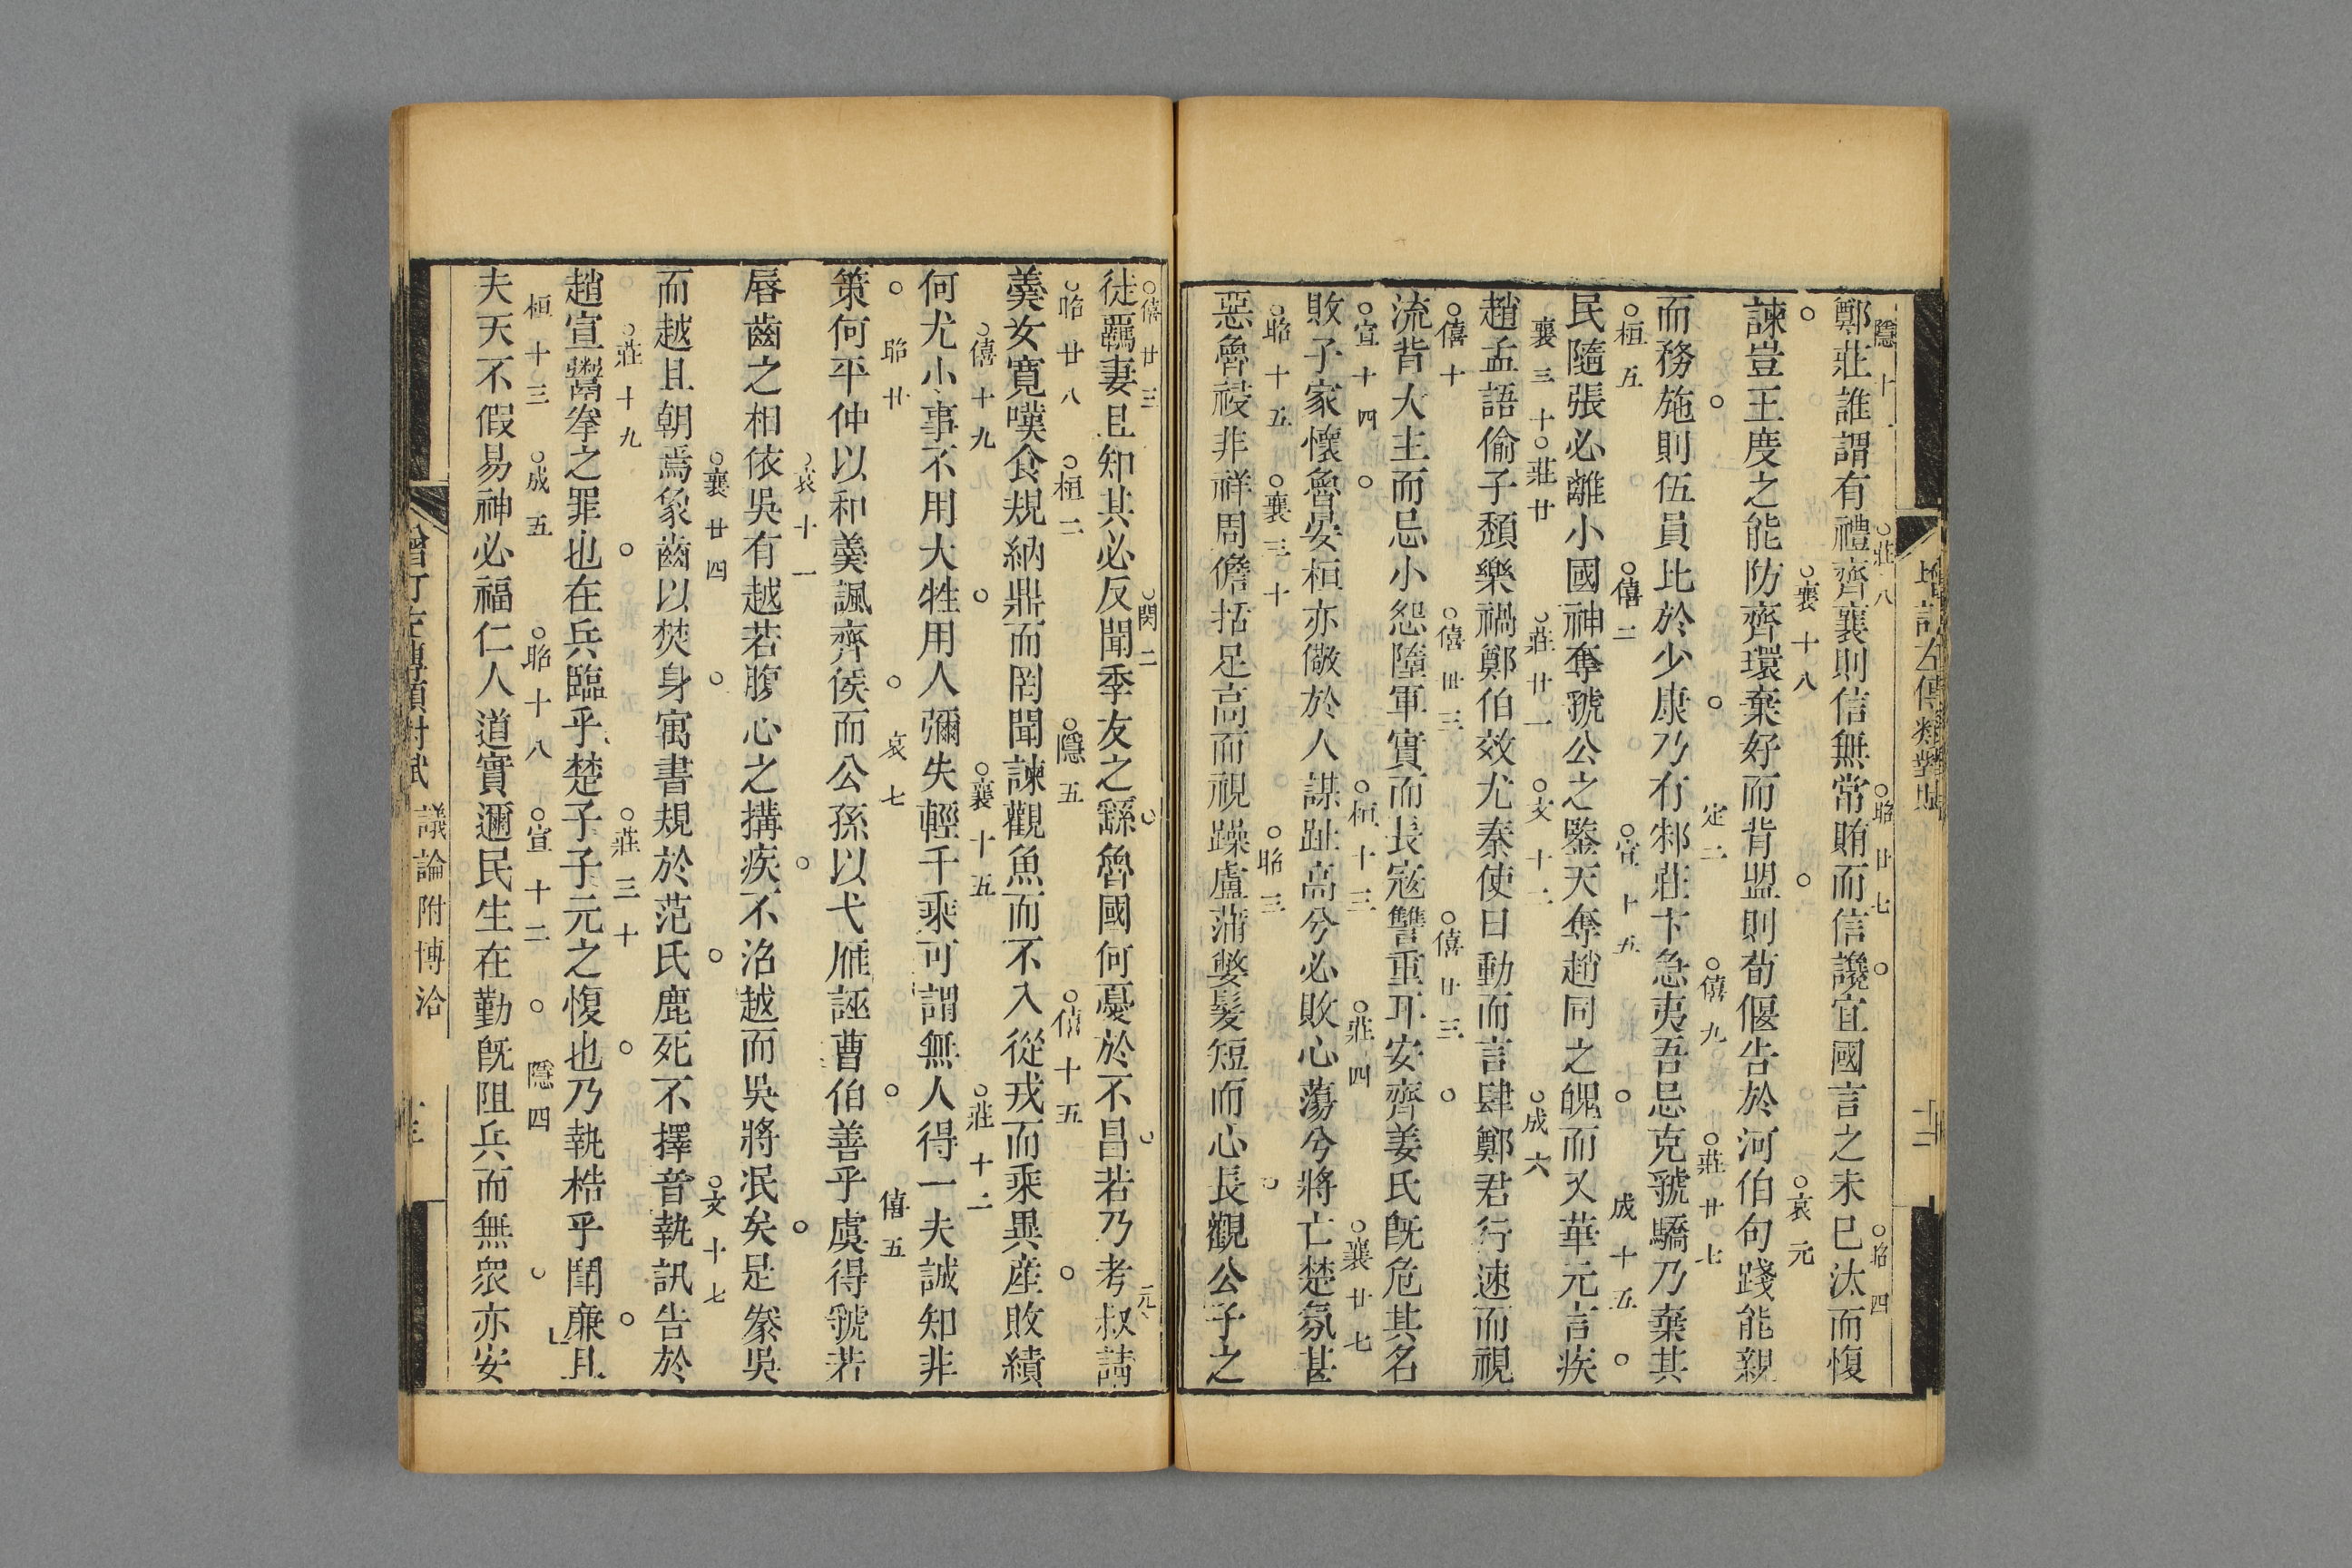 增訂左傳類對賦
隱十一 莊八 昭廿七 昭四
鄭莊誰謂有禮齊襄則信無常賄而信讒宜國言之未已汰而愎
襄十八 哀元
諫豈王度之能防齊環棄好而背盟則荀偃告於河伯句踐能親
定二 僖九 莊廿七
而務施則伍員比於少康乃有邾莊卞急夷吾忌克虢驕乃棄其
桓五 僖二 宣十五 成十五
民隨張必離小國神奪虢公之鑒天奪趙同之魄而乂華元言疾
襄三十 莊廿 莊廿一 文十二 成六
趙孟語偷子頹樂禍鄭伯效尤秦使目動而言肆鄭君行速而視
僖十 僖卅三 僖廿三
流背大主而忌小怨墮軍實而長寇讐重耳安齊姜氏旣危其名
宣十四 桓十三 莊四 襄廿七
敗子家懷魯晏桓亦儆於人謀趾高兮必敗心蕩兮將亡楚氛甚
昭十五 襄三十 昭三
惡魯祲非祥周儋括足高而視躁盧蒲嫳髮短而心長觀公子之
僖廿三 閔二 元
從羈妻且知其必反聞季友之繇魯國何憂於不昌若乃考叔請
昭廿八 桓二 隱五 僖十五
羹女寬嘆食規納鼎而罔聞諫觀魚而不入從戎而乘異産敗績
僖十九 襄十五 莊十二
何尤小事不用大牲用人彌失輕千乘可謂無人得一夫誠知非
昭廿 哀七 僖五
策何平仲以和羹諷齊侯而公孫以弋雁誣曹伯善乎虞得虢若
哀十一
唇齒之相依吳有越若腹心之搆疾不沼越而吳將泯矣是豢吳
襄廿四 文十七
而越且朝焉象齒以焚身寓書規於范氏鹿死不擇音執訊告於
莊十九 莊三十
趙宣鬻拳之罪也在兵臨乎楚子子元之愎也乃執梏乎鬪廉且
桓十三 成五 昭十八 宣十二 隱四
夫天不假易神必福仁人道實邇民生在勤旣阻兵而無衆亦安
增訂左傳類對賦 議論附博洽